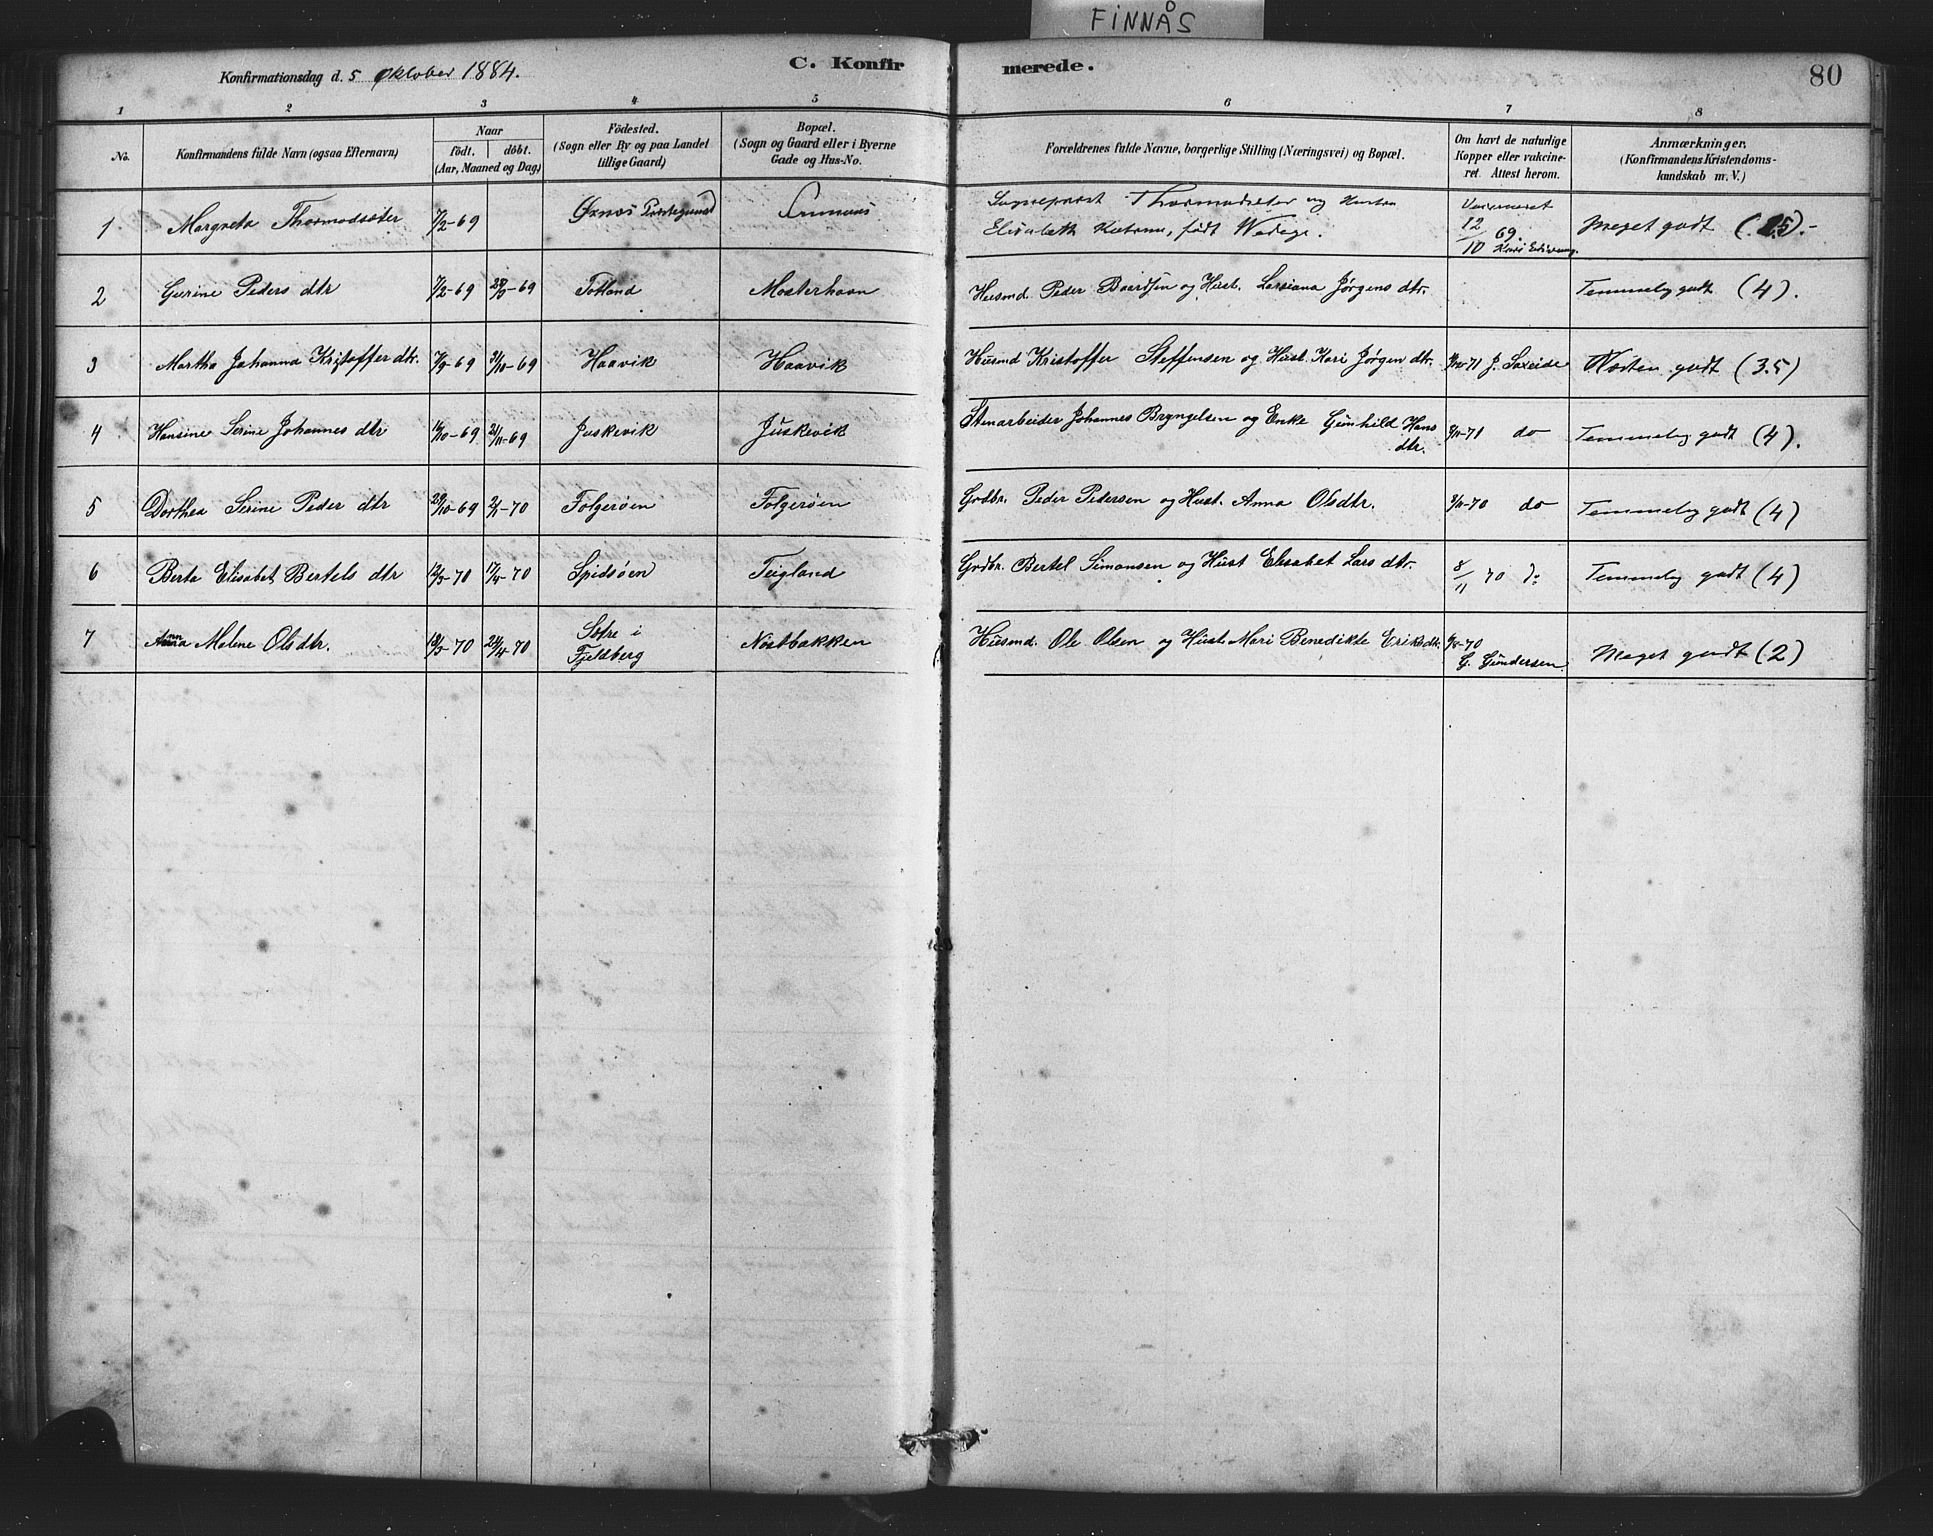 FINNÅS
Konfirmationsdag d. 5 Oktober 1884.
C. Konfirmerede.
80
1 2 3 4 5 6 7 8
No.
Konfirmandens fulde Navn (ogsaa Efternavn)
Naar
födt. döbt.
(Aar, Maaned og Dag)
Födested.
(Sogn eller By og paa Landet
tillige Gaard)
Bopæl.
(Sogn og Gaard eller i Byerne
Gade og Hus-No.
Forældrenes fulde Navne, borgerlige Stilling (Næringsvei) og Bopæl.
Om havt de naturlige
Kopper eller vakcine-
ret. Attest herom.
Anmærkninger.
(Konfirmandens Kristendoms-
kundskab m. V.)
1 Margreta Thormodsæter 7/2-69 Øxnes Præstegjeld Finnaas
Sogneprest Thormodsæter og Hustru
Elisabeth Katrine, født Wedege.
Vaccineret
12/10 69.
Meget godt
2 Gurine Peders dtr 7/2-69 Totland Mosterhavn Husmd. Peder Baardsen og Hust. Larsiana Jørgens dtr. Temmelig godt (4).
3 Martha Johanna Kristoffer dtr. 7/9-69 31/10-69 Haavik Haavik Husmd Kristoffer Steffensen og Hust. Kari Jørgen dtr. J. Sæxeide Næsten godt (3.5)
4 Hansine Serine Johannes dtr 16/10-69 21/11-69 Juskevik Juskevik Stenarbeider Johannes Bryngelsen og Enke Gunhild Hans
dtr. 8/11-71 do Temmelig godt (4).
5 Dorthea Serine Peder dtr 29/10-69 2/1-70 Folgerøen Folgerøen Grdbr. Peder Pedersen og Hust. Anna Olsdtr. 8/11-70 do Temmelig godt (4)
6 Berta Elisabet Bertels dtr 12/3-70 17/4-70 Spidsøen Teigland Grdbr. Bertel Simonsen og Hust Elisabet Lars dtr. 8/11 70 do Temmelig godt (4)
7 Anna Malene Olsdtr. 18/3-70 24/4-70 Sætre i
Fjeldberg Nøstbakken Husmd. Ole Olsen og Hust. Mari Benedikte Eriksdtr. 6/8-70
G. Gundersen Meget godt (2)